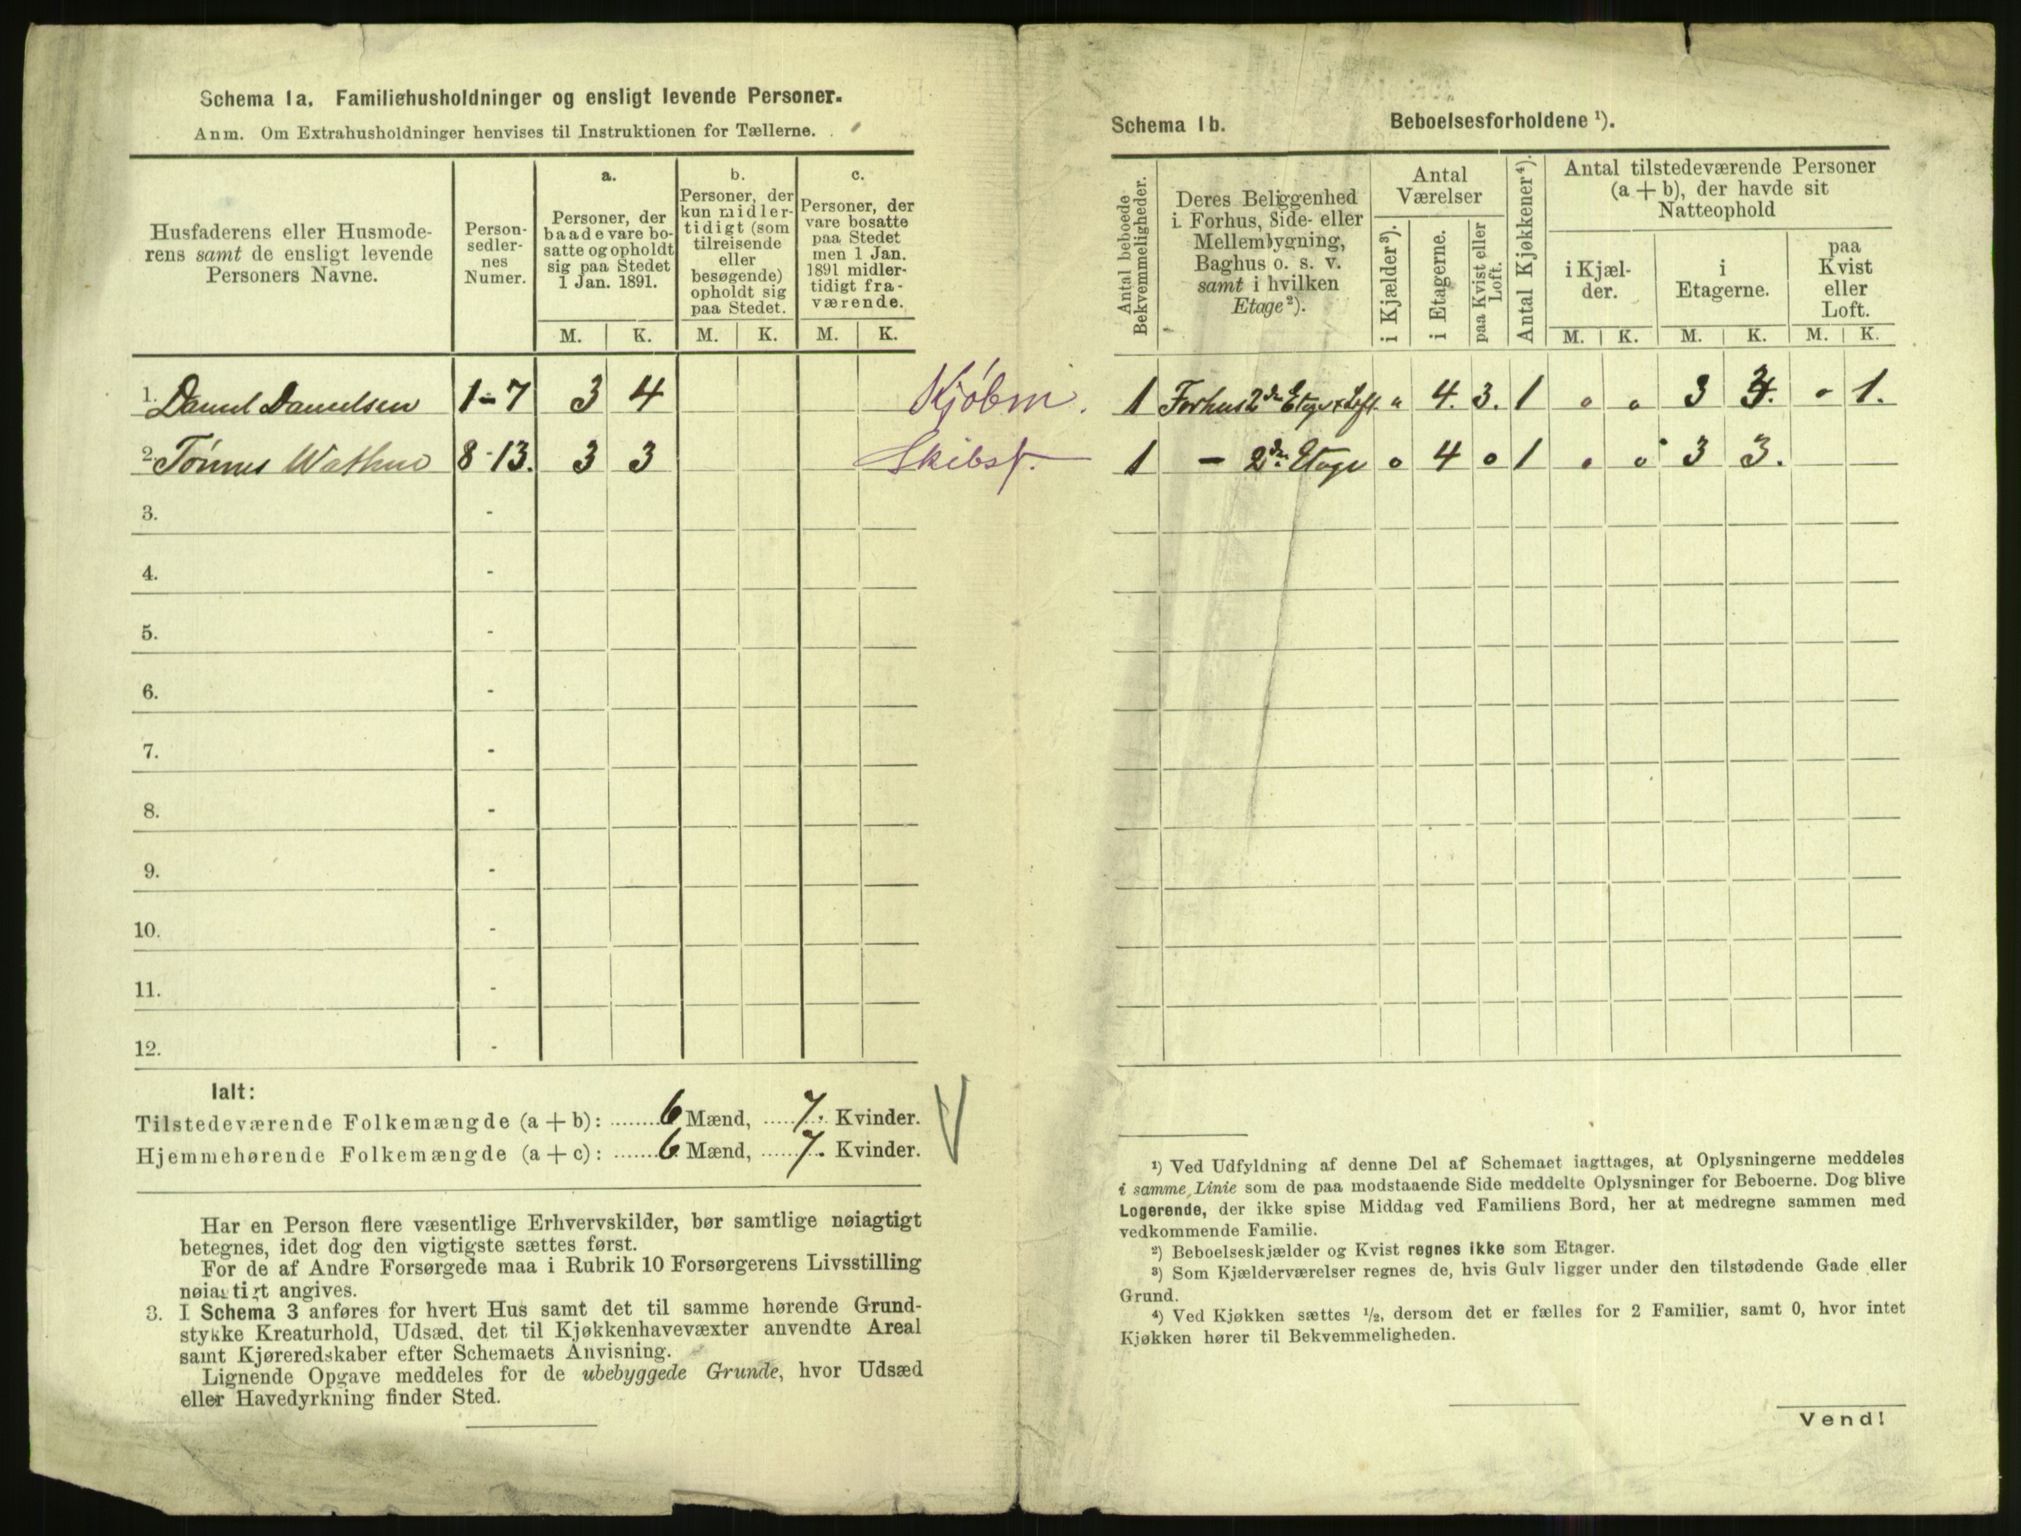 Schema 1a. Familiehusholdninger og ensligt levende Personer.
Anm. Om Extrahusholdninger henvises til Instruktionen for Tællerne.
Husfaderens eller Husmode-
rens samt de ensligt levende
Personers Navne.
Person-
sedler-
nes
Numer.
a.
Personer, der
baade vare bo-
satte og opholdt
sig paa Stedet
1 Jan. 1891.
b.
Personer, der
kun midler-
tidigt (som
tilreisende
eller
besøgende)
opholdt sig
paa Stedet.
c.
Personer, der
vare bosatte
paa Stedet
men 1 Jan.
1891 midler-
tidigt fra-
værende.
M. K. M. K. M. K.
1. Daniel Danielsen 1-7 3 4 Kjøbm.
2. Tønnes Wathne 8-13. 3 3 Skibsf.
3. -
4. -
5. -
6. -
7. -
8. -
9. -
10. -
11. -
12. -
Ialt:
Tilstedeværende Folkemængde (a + b): 6 Mænd, 7. Kvinder.
Hjemmehørende Folkemængde (a + c): 6 Mænd, 7. Kvinder.
Har en Person flere væsentlige Erhvervskilder, bør samtlige nøiagtigt
betegnes, idet dog den vigtigste sættes først.
For de af Andre Forsørgede maa i Rubrik 10 Forsørgerens Livsstilling
nøiagtigt angives.
3. I Schema 3 anføres for hvert Hus samt det til samme hørende Grund-
stykke Kreaturhold, Udsæd, det til Kjøkkenhavevæxter anvendte Areal
samt Kjøreredskaber efter Schemaets Anvisning.
Lignende Opgave meddeles for de ubebyggede Grunde, hvor Udsæd
eller Havedyrkning finder Sted.
Schema 1b. Beboelsesforholdene ¹).
Antal beboede
Bekvemmeligheder.
Deres Beliggenhed
i Forhus, Side- eller
Mellembygning,
Baghus o. s. v.
samt i hvilken
Etage ²).
Antal
Værelser
i Kjælder ³).
i Etagerne.
paa Kvist eller
Loft.
Antal Kjøkkener ⁴).
Antal tilstedeværende Personer
(a + b), der havde sit
Natteophold
i Kjæl-
der.
i
Etagerne.
paa
Kvist
eller
Loft.
M. K. M. K. M. K.
1 Forhus 2den Etage + Loft. " 4. 3. 1 o o 3 3. o 1.
1 - 2den Etage o 4 o 1 o o 3 3.
¹) Ved Udfyldning af denne Del af Schemaet iagttages, at Oplysningerne meddeles
i samme Linie som de paa modstaaende Side meddelte Oplysninger for Beboerne. Dog blive
Logerende, der ikke spise Middag ved Familiens Bord, her at medregne sammen med
vedkommende Familie.
²) Beboelseskjælder og Kvist regnes ikke som Etager.
³) Som Kjælderværelser regnes de, hvis Gulv ligger under den tilstødende Gade eller
Grund.
⁴) Ved Kjøkken sættes ½, dersom det er fælles for 2 Familier, samt 0, hvor intet
Kjøkken hører til Bekvemmeligheden.
Vend!